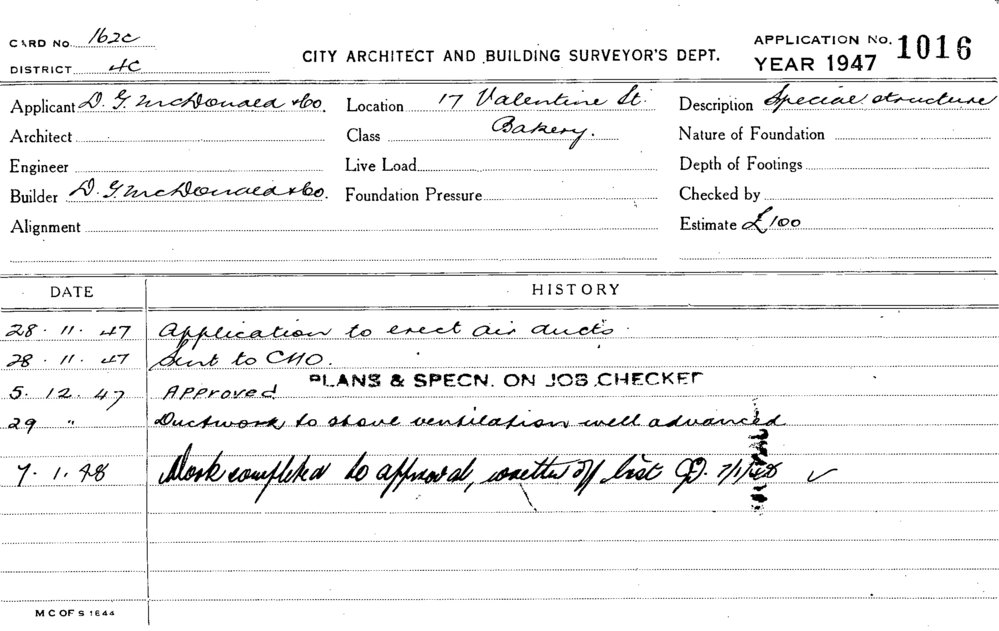 CARD No. 162c
DISTRICT 4C
CITY ARCHITECT AND BUILDING SURVEYOR'S DEPT.
APPLICATION No. 1016
YEAR 1947
Applicant D. G. McDonald & Co. Location 17 Valentine St. Description Special structure
Architect Class Bakery. Nature of Foundation
Engineer Live Load Depth of Footings
Builder D. G. McDonald & Co. Foundation Pressure Checked by
Alignment Estimate £100
DATE HISTORY
28.11.47 Application to erect air ducts.
28.11.47 Sent to CHO.
PLANS & SPECN. ON JOB CHECKED
5.12.47 Approved
29 " Ductwork to stove ventilation well advanced
7.1.48 Work completed to approval, written off list 7/1/48 ✓
M C OF S 1644